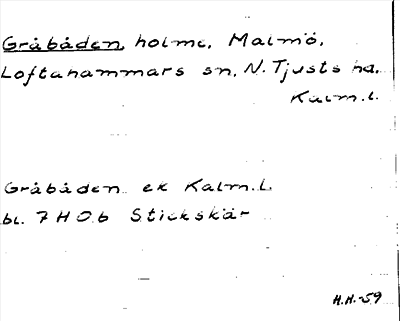 Gråbåden, holme, Malmö,
Loftahammars sn, N. Tjusts hd,
Kalm. l.
Gråbåden ek Kalm. L.
bl. 7 H 0.b Stickskär
H.H.-59